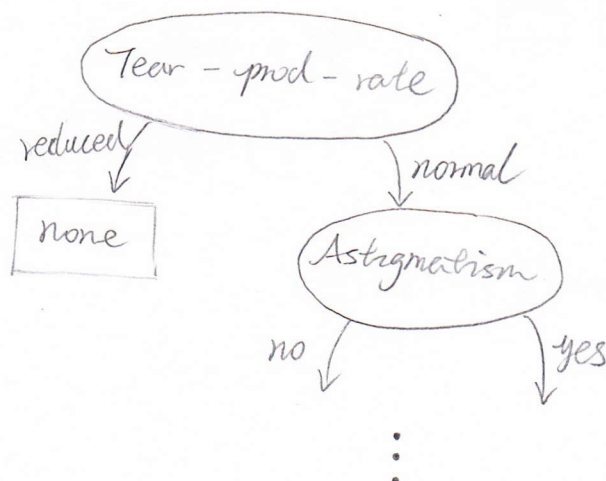 Tear-prod-rate
reduced
normal
none
Astigmatism
no
yes